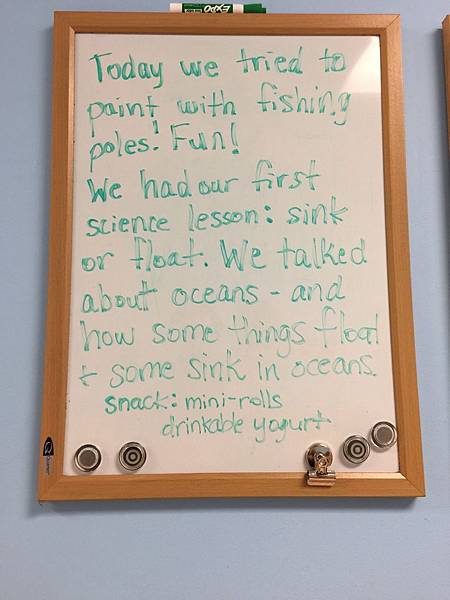 EXPO
Today we tried to
paint with fishing
poles! Fun!
We had our first
science lesson: sink
or float. We talked
about oceans - and
how some things float
+ some sink in oceans.
snack: mini-rolls
drinkable yogurt